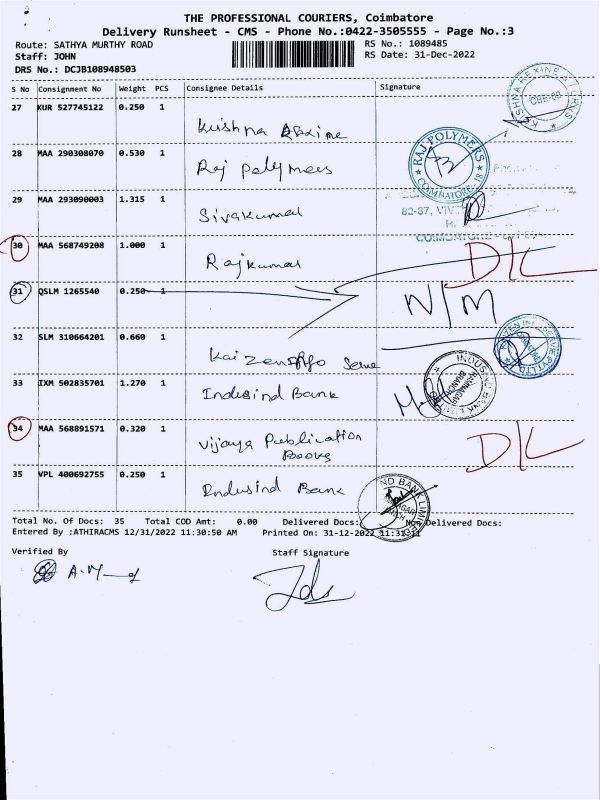 THE PROFESSIONAL COURIERS, Coimbatore
Delivery Runsheet - CMS - Phone No.:0422-3505555 - Page No.:3
Route: SATHYA MURTHY ROAD
RS No.: 1089485
Staff: JOHN
RS Date: 31-Dec-2022
DRS No.: DCJB108948503
S No Consignment No Weight PCS Consignee Details Signature
27 KUR 527745122 0.250 1
Krishna
KRISHNA REXINE
28 MAA 290308070 0.530 1
Raj Polymers
RAJ POLYMERS
COIMBATORE
29 MAA 293090003 1.315 1
Sivakumar
82-87,
30 MAA 568749208 1.000 1
Rajkumar
D/L
31 QSLM 1265540 0.250 1
N/M
32 SLM 310664201 0.660 1
Kaizen Serve
33 IXM 502835701 1.270 1
Indusind Bank
INDUSIND BANK LIMITED
34 MAA 568891571 0.320 1
Vijaya Publication
Books
D/L
35 VPL 400692755 0.250 1
Indusind Bank
ND BANK LIMITED
Total No. Of Docs: 35 Total COD Amt: 0.00 Delivered Docs: Non Delivered Docs:
Entered By :ATHIRACMS 12/31/2022 11:30:50 AM Printed On: 31-12-2022 11:31:11
Verified By Staff Signature